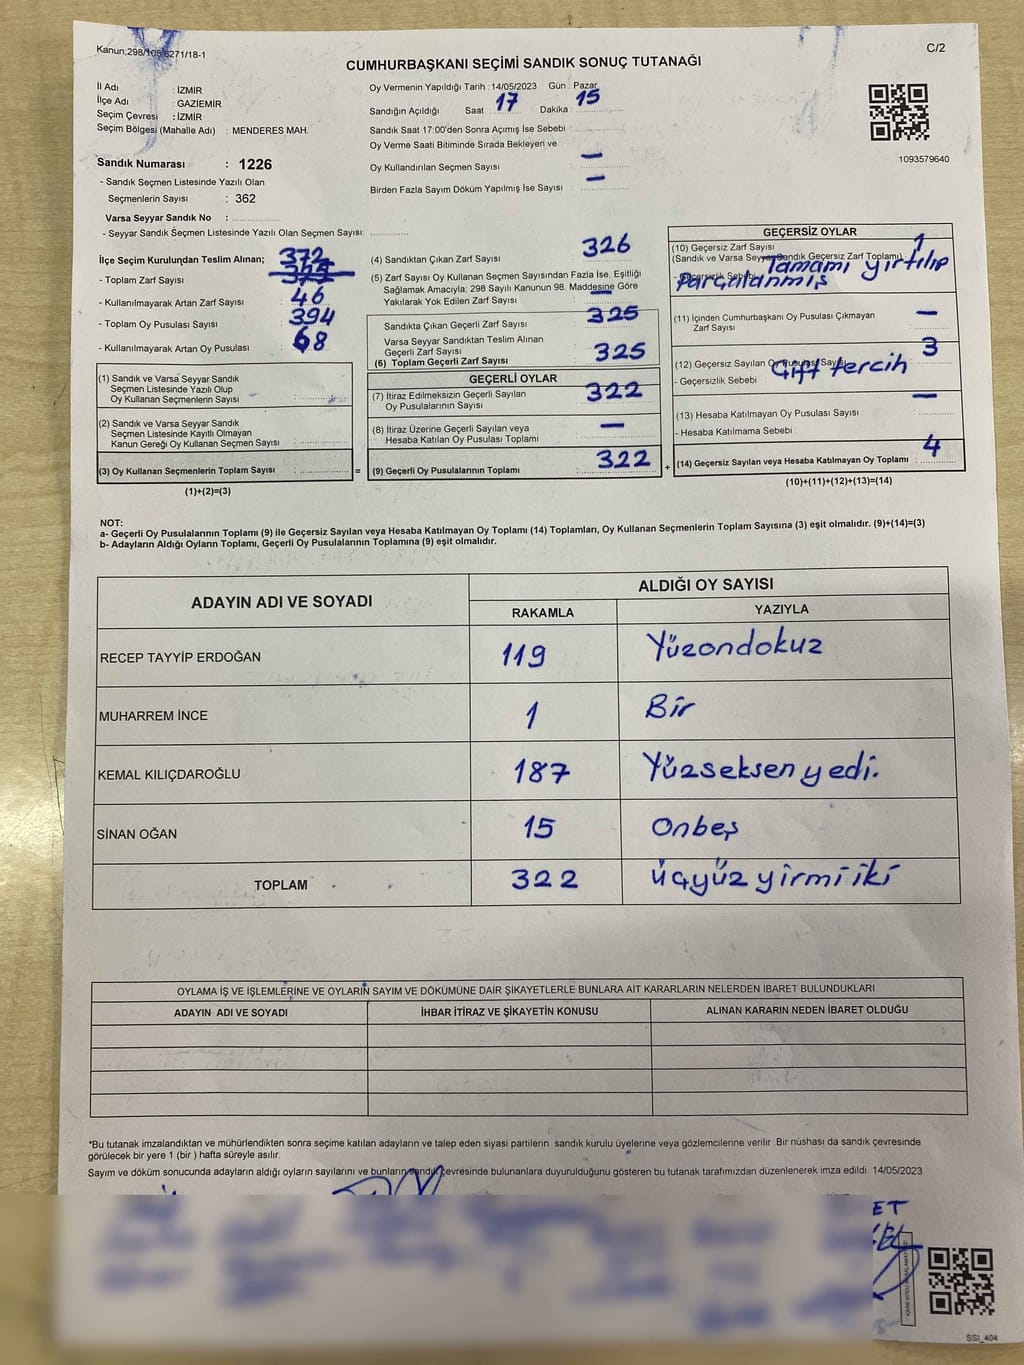 Kanun;298/105,6271/18-1
C/2
CUMHURBAŞKANI SEÇİMİ SANDIK SONUÇ TUTANAĞI
İl Adı : İZMİR
İlçe Adı : GAZİEMİR
Seçim Çevresi : İZMİR
Seçim Bölgesi (Mahalle Adı) : MENDERES MAH.
Sandık Numarası : 1226
- Sandık Seçmen Listesinde Yazılı Olan
Seçmenlerin Sayısı : 362
Varsa Seyyar Sandık No :
- Seyyar Sandık Seçmen Listesinde Yazılı Olan Seçmen Sayısı:
Oy Vermenin Yapıldığı Tarih :14/05/2023 Gün : Pazar
Sandığın Açıldığı Saat 17 Dakika : 15
Sandık Saat 17:00'den Sonra Açımış İse Sebebi :
Oy Verme Saati Bitiminde Sırada Bekleyen ve
Oy Kullandırılan Seçmen Sayısı : —
Birden Fazla Sayım Döküm Yapılmış İse Sayısı : —
1093579640
İlçe Seçim Kurulundan Teslim Alınan; 372
- Toplam Zarf Sayısı
- Kullanılmayarak Artan Zarf Sayısı : 46
- Toplam Oy Pusulası Sayısı : 394
- Kullanılmayarak Artan Oy Pusulası : 68
(1) Sandık ve Varsa Seyyar Sandık
Seçmen Listesinde Yazılı Olup
Oy Kullanan Seçmenlerin Sayısı :
(2) Sandık ve Varsa Seyyar Sandık
Seçmen Listesinde Kayıtlı Olmayan
Kanun Gereği Oy Kullanan Seçmen Sayısı :
(3) Oy Kullanan Seçmenlerin Toplam Sayısı : =
(1)+(2)=(3)
(4) Sandıktan Çıkan Zarf Sayısı : 326
(5) Zarf Sayısı Oy Kullanan Seçmen Sayısından Fazla İse, Eşitliği
Sağlamak Amacıyla; 298 Sayılı Kanunun 98. Maddesine Göre
Yakılarak Yok Edilen Zarf Sayısı : —
Sandıkta Çıkan Geçerli Zarf Sayısı : 325
Varsa Seyyar Sandıktan Teslim Alınan
Geçerli Zarf Sayısı
(6) Toplam Geçerli Zarf Sayısı 325
GEÇERLİ OYLAR
(7) İtiraz Edilmeksizin Geçerli Sayılan
Oy Pusulalarının Sayısı : 322
(8) İtiraz Üzerine Geçerli Sayılan veya
Hesaba Katılan Oy Pusulası Toplamı : —
(9) Geçerli Oy Pusulalarının Toplamı : 322 +
GEÇERSİZ OYLAR
(10) Geçersiz Zarf Sayısı 1
(Sandık ve Varsa Seyyar Sandık Geçersiz Zarf Toplamı) :
- Geçersizlik Sebebi : Tamamı yırtılıp
Parçalanmış
(11) İçinden Cumhurbaşkanı Oy Pusulası Çıkmayan
Zarf Sayısı —
(12) Geçersiz Sayılan Oy Pusulası Sayısı 3
- Geçersizlik Sebebi : Çift tercih
(13) Hesaba Katılmayan Oy Pusulası Sayısı : —
- Hesaba Katılmama Sebebi :
(14) Geçersiz Sayılan veya Hesaba Katılmayan Oy Toplamı : 4
(10)+(11)+(12)+(13)=(14)
NOT:
a- Geçerli Oy Pusulalarının Toplamı (9) ile Geçersiz Sayılan veya Hesaba Katılmayan Oy Toplamı (14) Toplamları, Oy Kullanan Seçmenlerin Toplam Sayısına (3) eşit olmalıdır. (9)+(14)=(3)
b- Adayların Aldığı Oyların Toplamı, Geçerli Oy Pusulalarının Toplamına (9) eşit olmalıdır.
ADAYIN ADI VE SOYADI
ALDIĞI OY SAYISI
RAKAMLA YAZIYLA
RECEP TAYYİP ERDOĞAN 119 Yüzondokuz
MUHARREM İNCE 1 Bir
KEMAL KILIÇDAROĞLU 187 Yüzseksenyedi.
SİNAN OĞAN 15 Onbeş
TOPLAM 322 üçyüzyirmiiki
OYLAMA İŞ VE İŞLEMLERİNE VE OYLARIN SAYIM VE DÖKÜMÜNE DAİR ŞİKAYETLERLE BUNLARA AİT KARARLARIN NELERDEN İBARET BULUNDUKLARI
ADAYIN ADI VE SOYADI İHBAR İTİRAZ VE ŞİKAYETİN KONUSU ALINAN KARARIN NEDEN İBARET OLDUĞU
*Bu tutanak imzalandıktan ve mühürlendikten sonra seçime katılan adayların ve talep eden siyasi partilerin sandık kurulu üyelerine veya gözlemcilerine verilir .Bir nüshası da sandık çevresinde
görülecek bir yere 1 (bir ) hafta süreyle asılır.
Sayım ve döküm sonucunda adayların aldığı oyların sayılarını ve bunların sandık çevresinde bulunanlara duyurulduğunu gösteren bu tutanak tarafımızdan düzenlenerek imza edildi 14/05/2023
ET
SSI_404